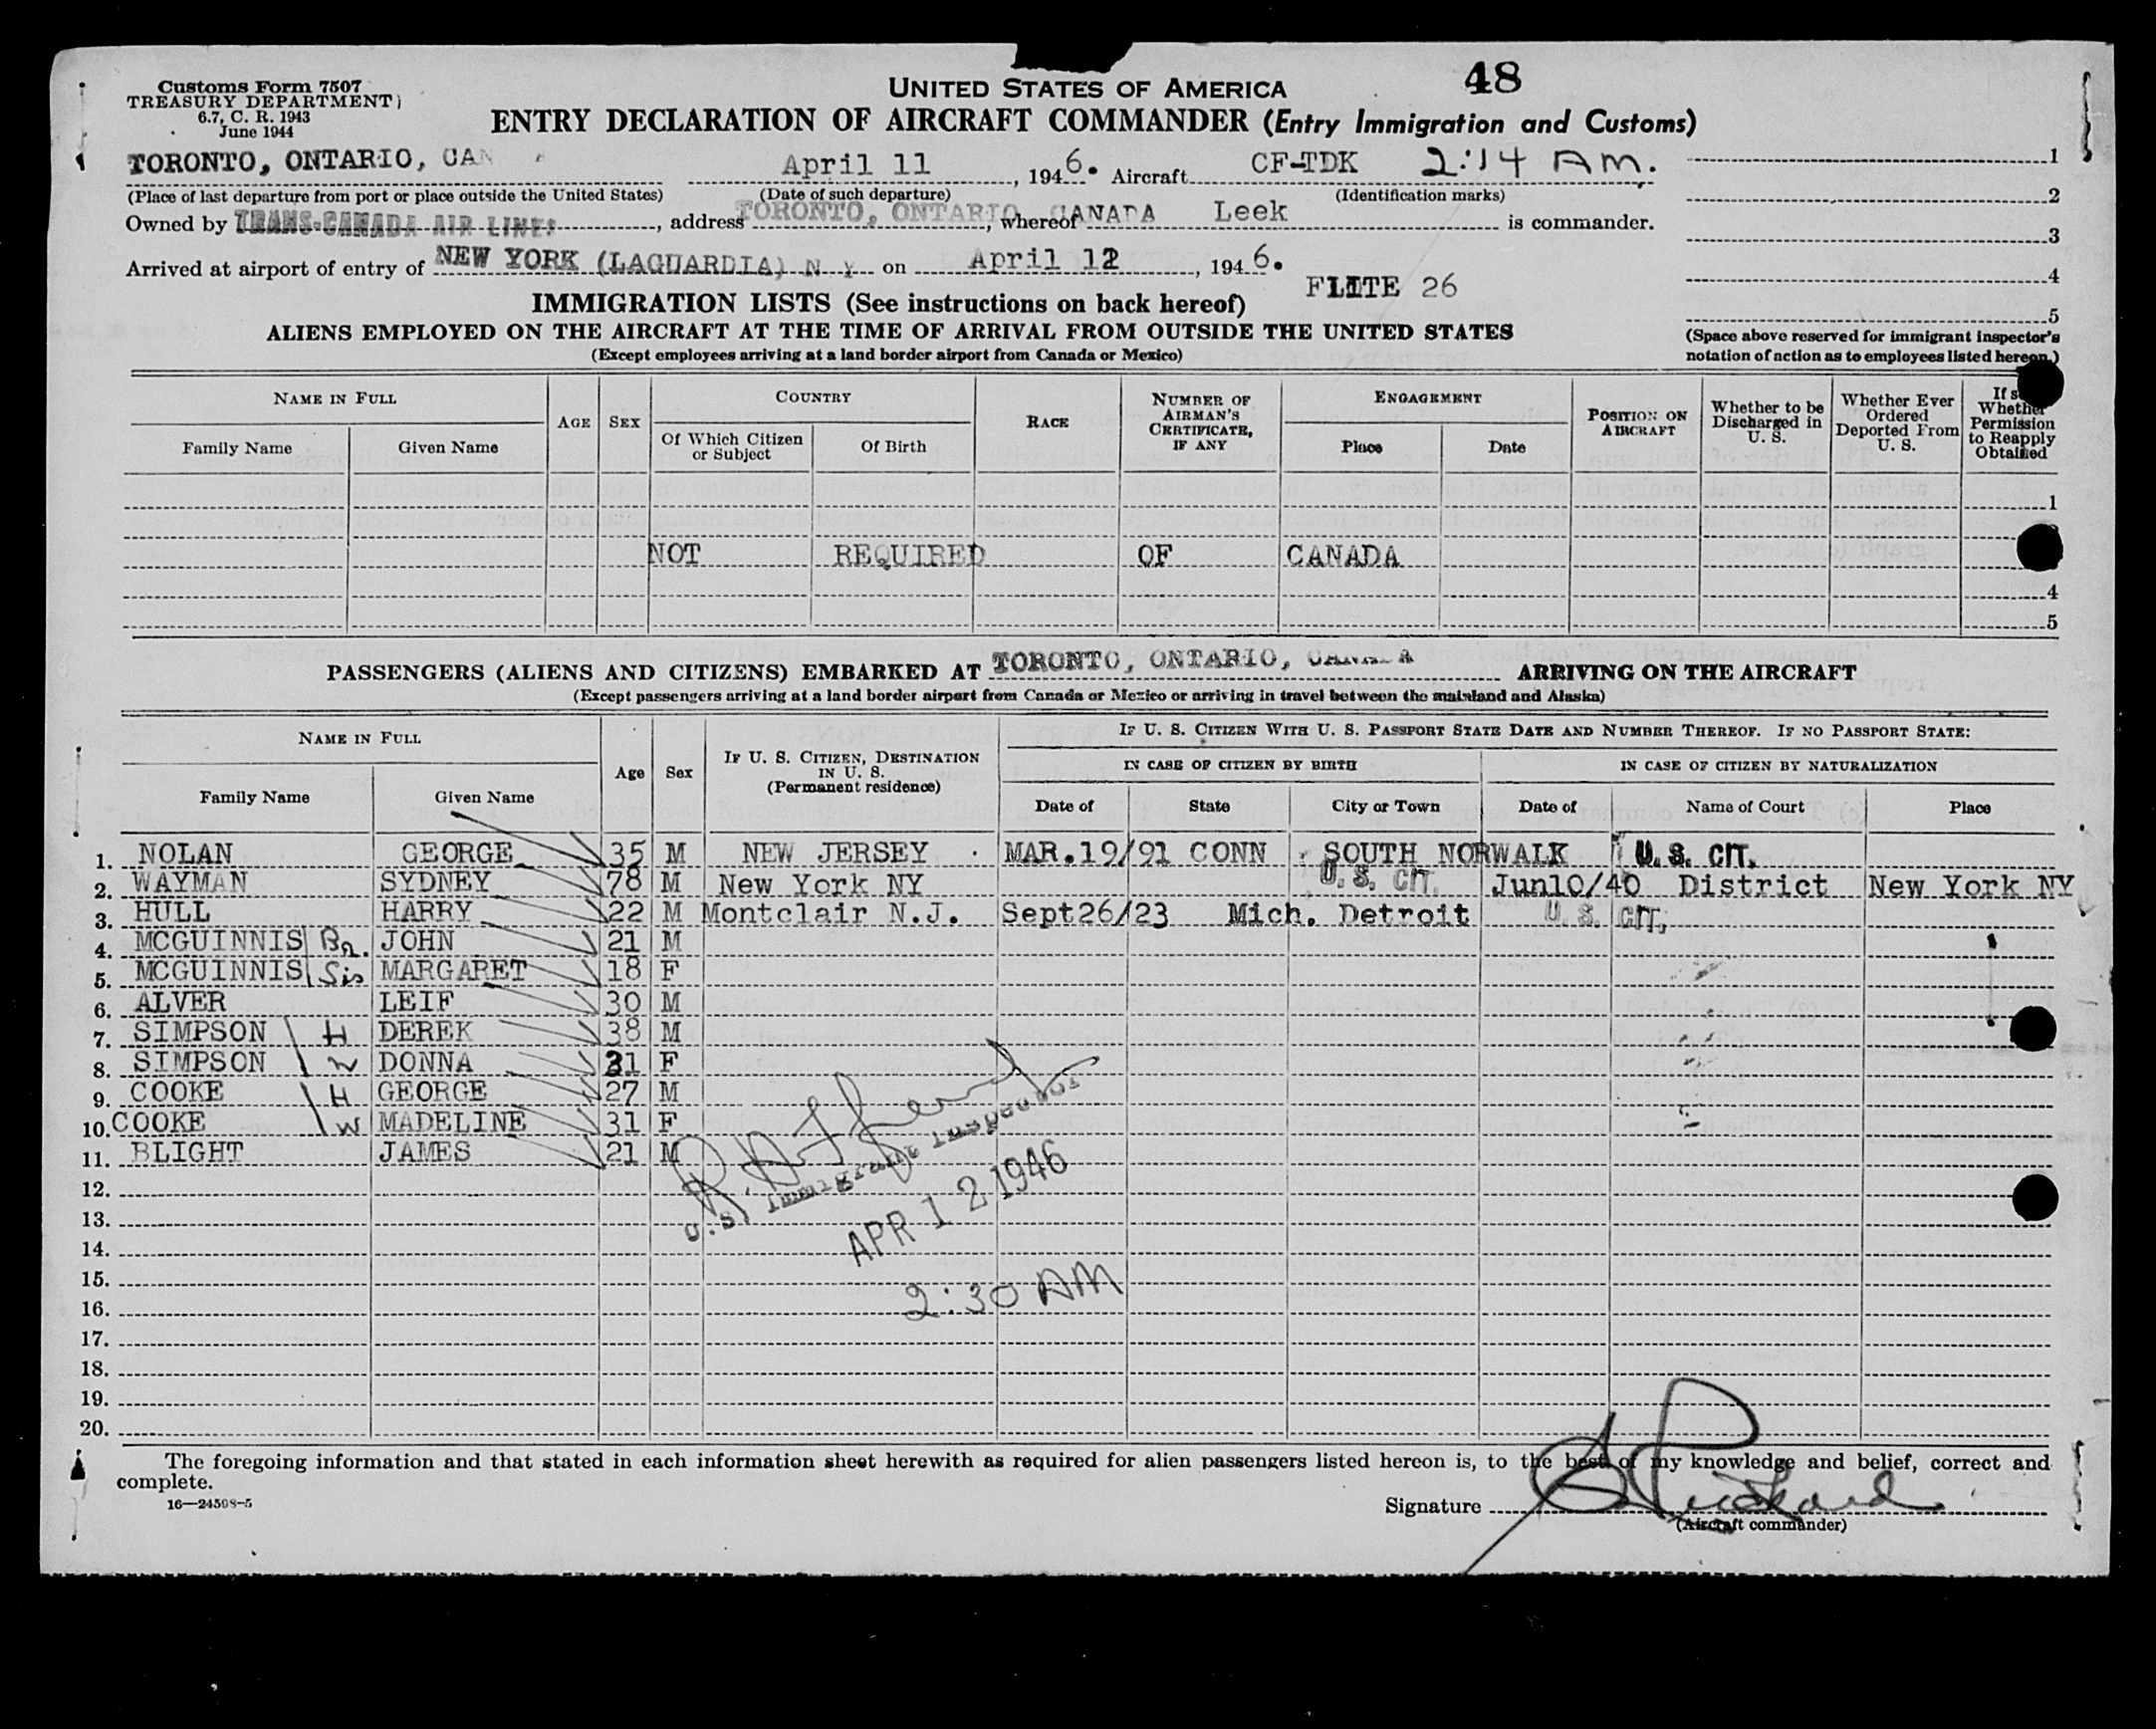 Customs Form 7507
TREASURY DEPARTMENT
6.7, C. R. 1943
June 1944
UNITED STATES OF AMERICA 48
ENTRY DECLARATION OF AIRCRAFT COMMANDER (Entry Immigration and Customs)
TORONTO, ONTARIO, CAN April 11, 1946. Aircraft CF-TDK 2:14 AM. 1
(Place of last departure from port or place outside the United States) (Date of such departure) (Identification marks) 2
Owned by TRANS-CANADA AIR LINES, address TORONTO, ONTARIO, CANADA whereof Leek is commander. 3
Arrived at airport of entry of NEW YORK (LAGUARDIA) N Y on April 12, 1946. 4
FLITE 26 5
IMMIGRATION LISTS (See instructions on back hereof)
ALIENS EMPLOYED ON THE AIRCRAFT AT THE TIME OF ARRIVAL FROM OUTSIDE THE UNITED STATES
(Except employees arriving at a land border airport from Canada or Mexico)
(Space above reserved for immigrant inspector's
notation of action as to employees listed hereon.)
NAME IN FULL
Family Name Given Name
AGE SEX
COUNTRY
Of Which Citizen or Subject Of Birth
RACE
NUMBER OF AIRMAN'S CERTIFICATE, IF ANY
ENGAGEMENT
Place Date
POSITION ON AIRCRAFT
Whether to be Discharged in U. S.
Whether Ever Ordered Deported From U. S.
Whether Permission to Reapply Obtained
1
NOT REQUIRED OF CANADA
4
5
PASSENGERS (ALIENS AND CITIZENS) EMBARKED AT TORONTO, ONTARIO, CANADA ARRIVING ON THE AIRCRAFT
(Except passengers arriving at a land border airport from Canada or Mexico or arriving in travel between the mainland and Alaska)
NAME IN FULL
Family Name Given Name
Age Sex
IF U. S. CITIZEN, DESTINATION IN U. S. (Permanent residence)
IF U. S. CITIZEN WITH U. S. PASSPORT STATE DATE AND NUMBER THEREOF. IF NO PASSPORT STATE:
IN CASE OF CITIZEN BY BIRTH IN CASE OF CITIZEN BY NATURALIZATION
Date of State City or Town Date of Name of Court Place
1. NOLAN GEORGE 35 M NEW JERSEY MAR.19/91 CONN SOUTH NORWALK U. S. CIT.
2. WAYMAN SYDNEY 78 M New York NY U. S. CIT. Jun10/40 District New York NY
3. HULL HARRY 22 M Montclair N.J. Sept26/23 Mich. Detroit U. S. CIT.
4. MCGUINNIS Br. JOHN 21 M
5. MCGUINNIS Sis MARGARET 18 F
6. ALVER LEIF 30 M
7. SIMPSON H DEREK 38 M
8. SIMPSON W DONNA 31 F
9. COOKE H GEORGE 27 M
10. COOKE W MADELINE 31 F
11. BLIGHT JAMES 21 M
12.
13.
14.
15.
16.
17.
18.
19.
20.
U.S. Immigrant Inspector
APR 12 1946
2:30 AM
The foregoing information and that stated in each information sheet herewith as required for alien passengers listed hereon is, to the best of my knowledge and belief, correct and
complete.
16—24598-5
Signature
(Aircraft commander)